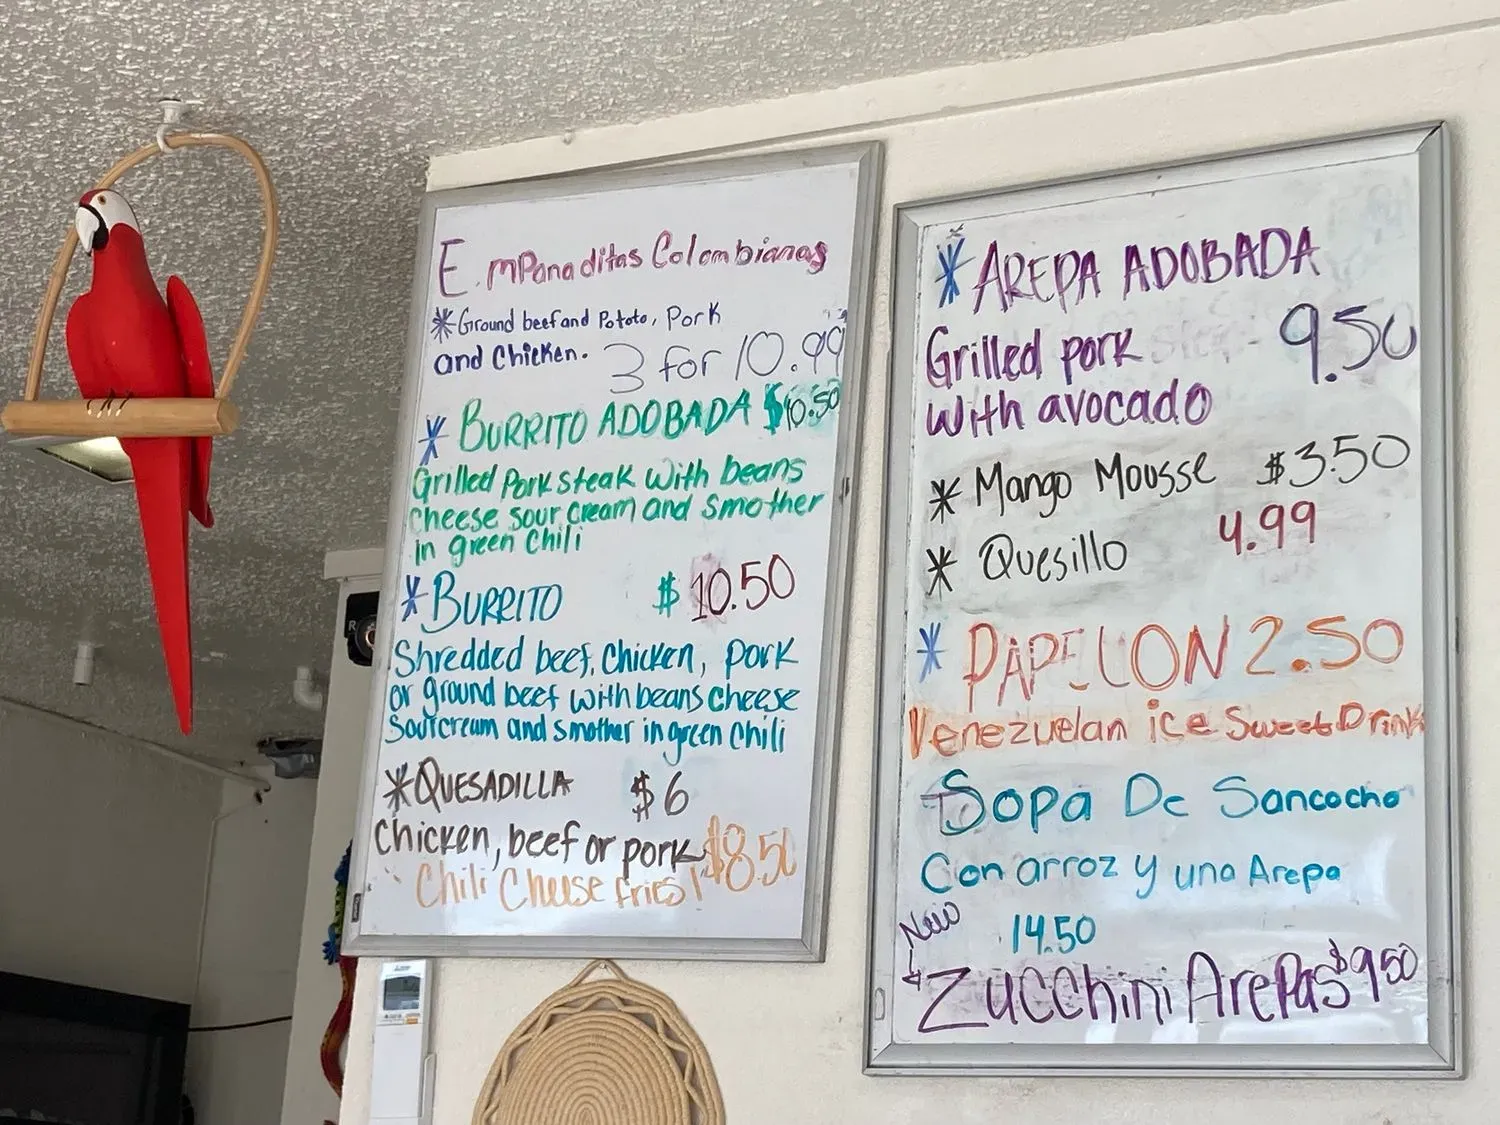 E.mpanaditas Colombianas
*Ground beef and Potato, Pork
and Chicken. 3 for 10.99
* BURRITO ADOBADA $10.50
Grilled Pork steak with beans
cheese sour cream and smother
in green chili
* BURRITO $10.50
Shredded beef, chicken, pork
or ground beef with beans cheese
Sour cream and smother in green chili
* QUESADILLA $6
Chicken, beef or pork $8.50
Chili Cheese fries!
* AREPA ADOBADA
Grilled pork 9.50
with avocado
* Mango Mousse $3.50
* Quesillo 4.99
* PAPELON 2.50
Venezuelan ice Sweet Drink
Sopa De Sancocho
Con arroz y una Arepa
14.50
New
Zucchini Arepas $9.50
R